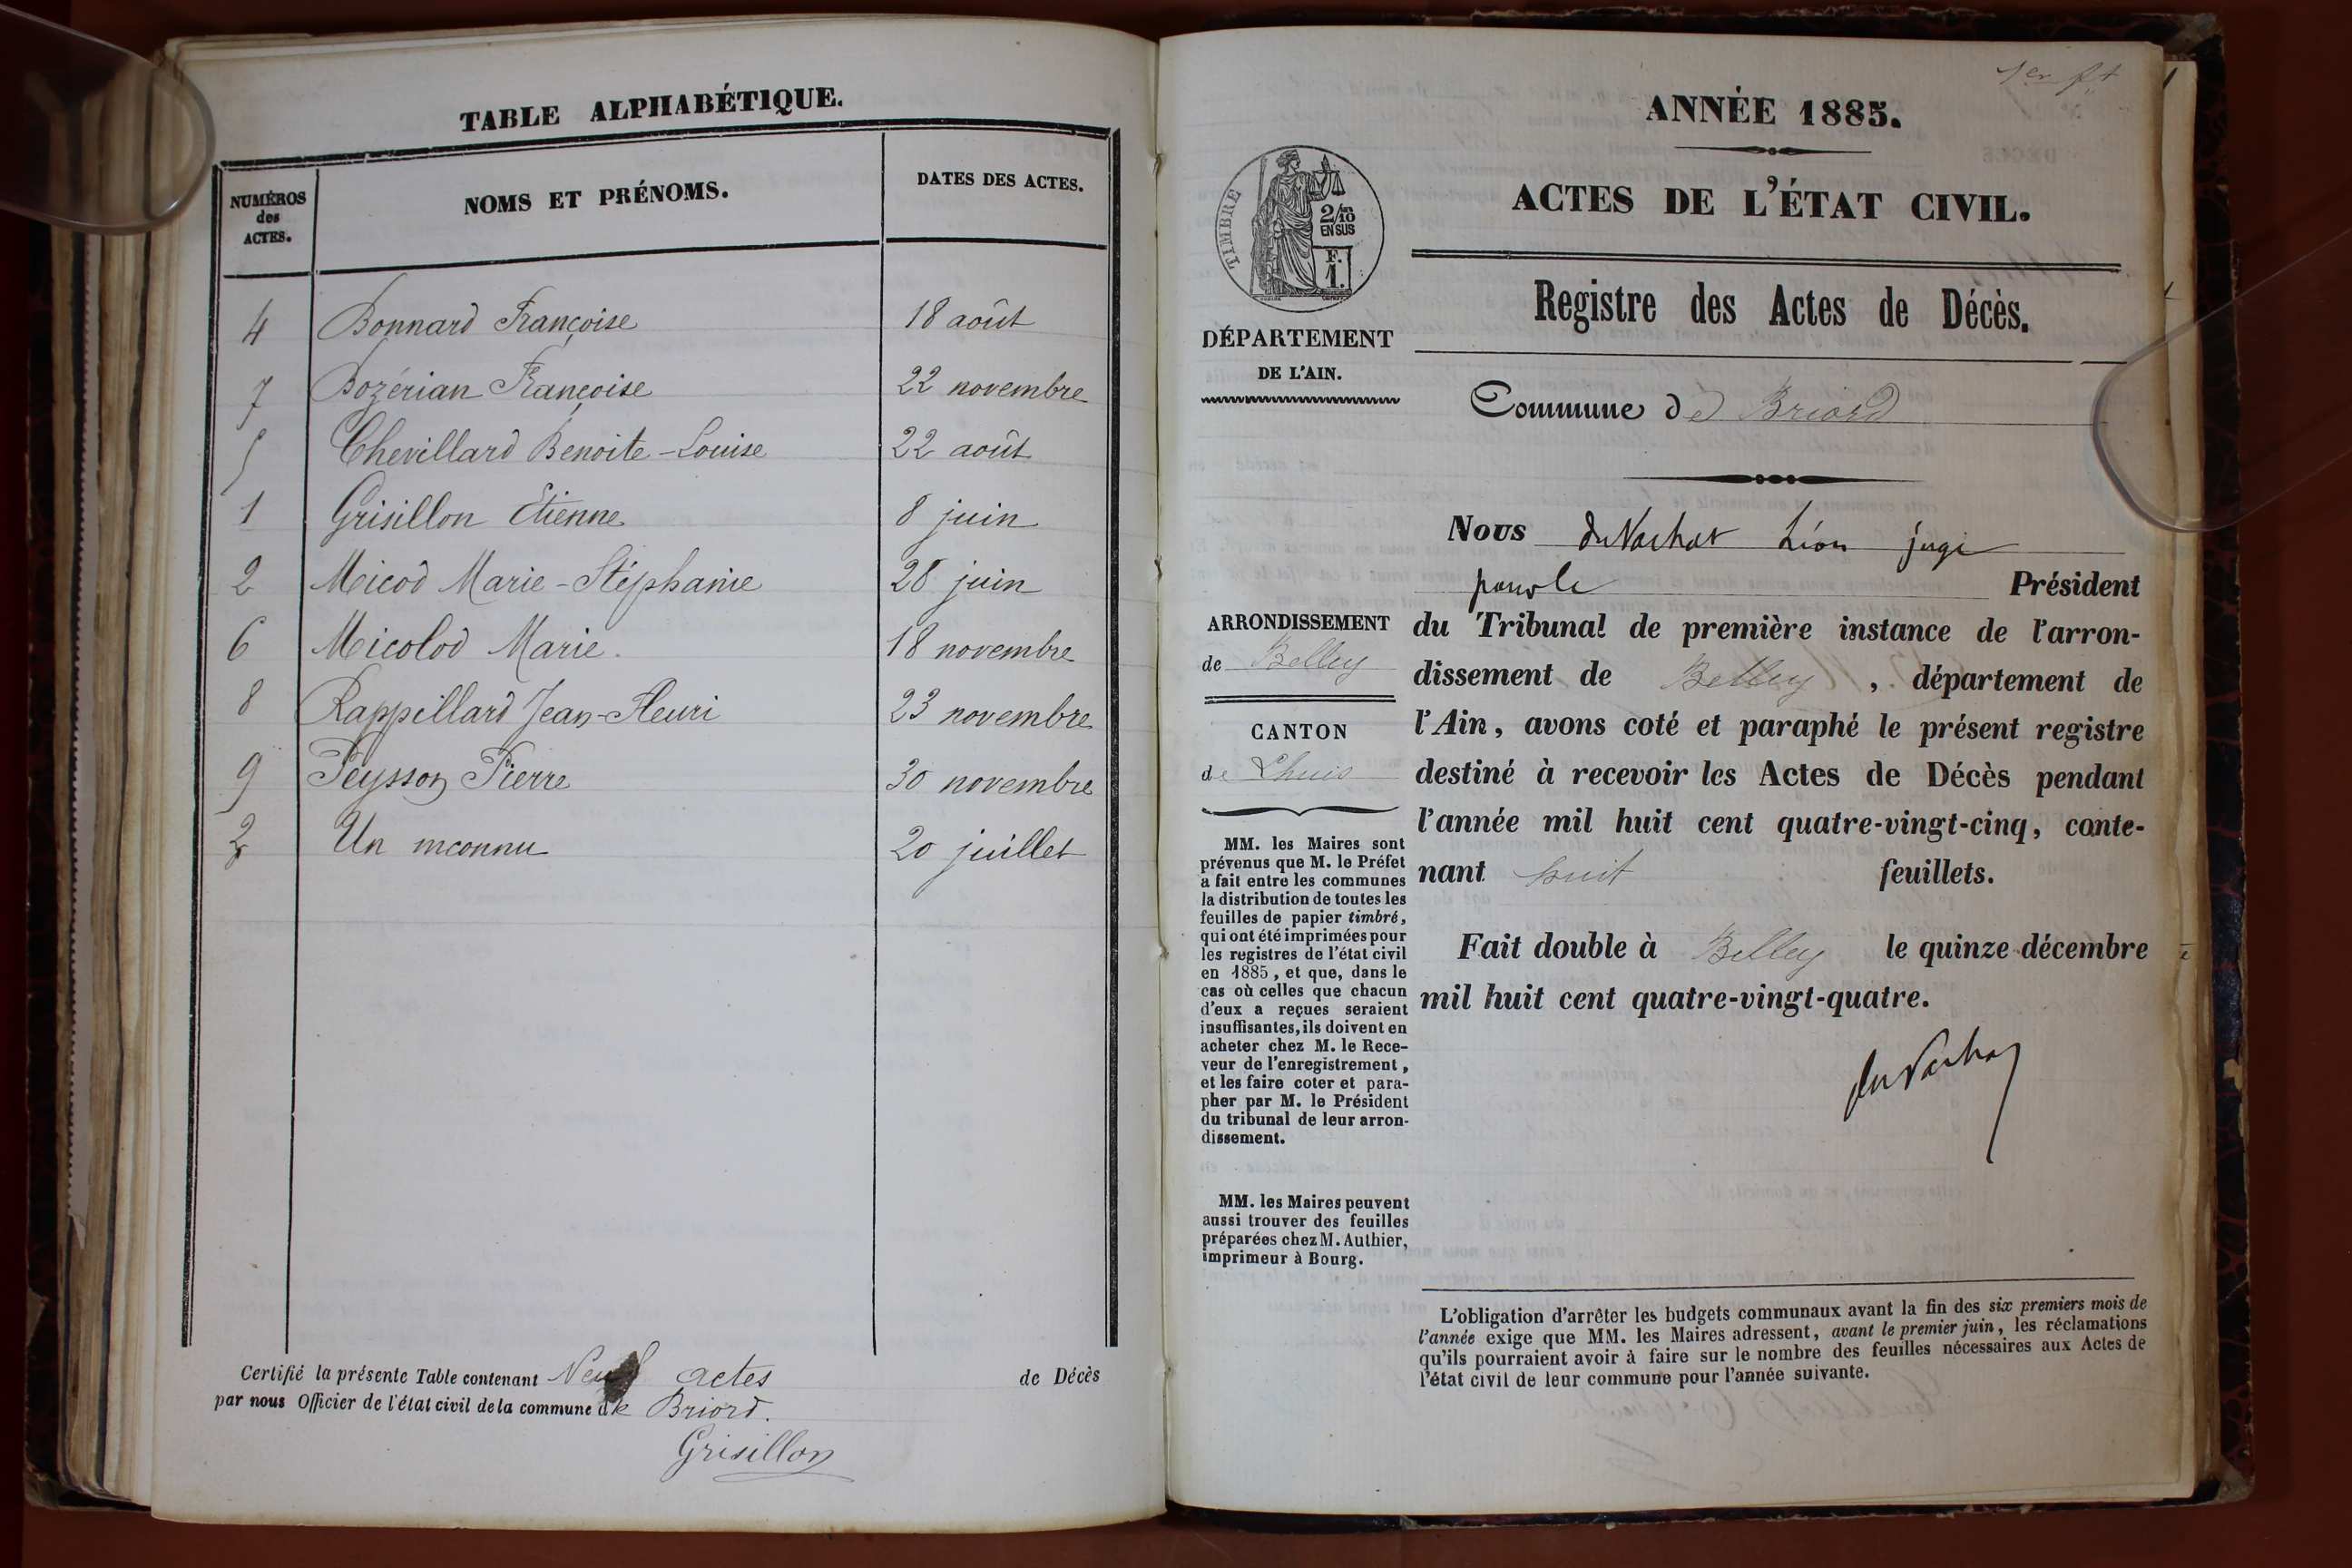 TABLE ALPHABÉTIQUE.
NUMÉROS des ACTES.
NOMS ET PRÉNOMS.
DATES DES ACTES.
4 Bonnard Françoise 18 août
7 Bozérian Françoise 22 novembre
5 Chevillard Benoite-Louise 22 août
1 Grisillon Etienne 8 juin
2 Micod Marie-Stéphanie 28 juin
6 Micolod Marie. 18 novembre
8 Rappillard Jean-Fleuri 23 novembre
9 Peysson Pierre 30 novembre
Un inconnu 20 juillet
Certifié la présente Table contenant Neuf actes de Décès
par nous Officier de l'état civil de la commune de Briord.
Grisillon
1er ft
ANNÉE 1885.
ACTES DE L'ÉTAT CIVIL.
TIMBRE
2/10 EN SUS
F. 1.
Registre des Actes de Décès.
DÉPARTEMENT
DE L'AIN.
Commune de Briord
Nous du Vachat Léon juge
pour le Président
ARRONDISSEMENT
de Belley
CANTON
de Lhuis
du Tribunal de première instance de l'arron-
dissement de Belley, département de
l'Ain, avons coté et paraphé le présent registre
destiné à recevoir les Actes de Décès pendant
l'année mil huit cent quatre-vingt-cinq, conte-
nant huit feuillets.
Fait double à Belley le quinze décembre
mil huit cent quatre-vingt-quatre.
du Vachat
MM. les Maires sont
prévenus que M. le Préfet
a fait entre les communes
la distribution de toutes les
feuilles de papier timbré,
qui ont été imprimées pour
les registres de l'état civil
en 1885, et que, dans le
cas où celles que chacun
d'eux a reçues seraient
insuffisantes, ils doivent en
acheter chez M. le Rece-
veur de l'enregistrement,
et les faire coter et para-
pher par M. le Président
du tribunal de leur arron-
dissement.
MM. les Maires peuvent
aussi trouver des feuilles
préparées chez M. Authier,
imprimeur à Bourg.
L'obligation d'arrêter les budgets communaux avant la fin des six premiers mois de
l'année exige que MM. les Maires adressent, avant le premier juin, les réclamations
qu'ils pourraient avoir à faire sur le nombre des feuilles nécessaires aux Actes de
l'état civil de leur commune pour l'année suivante.